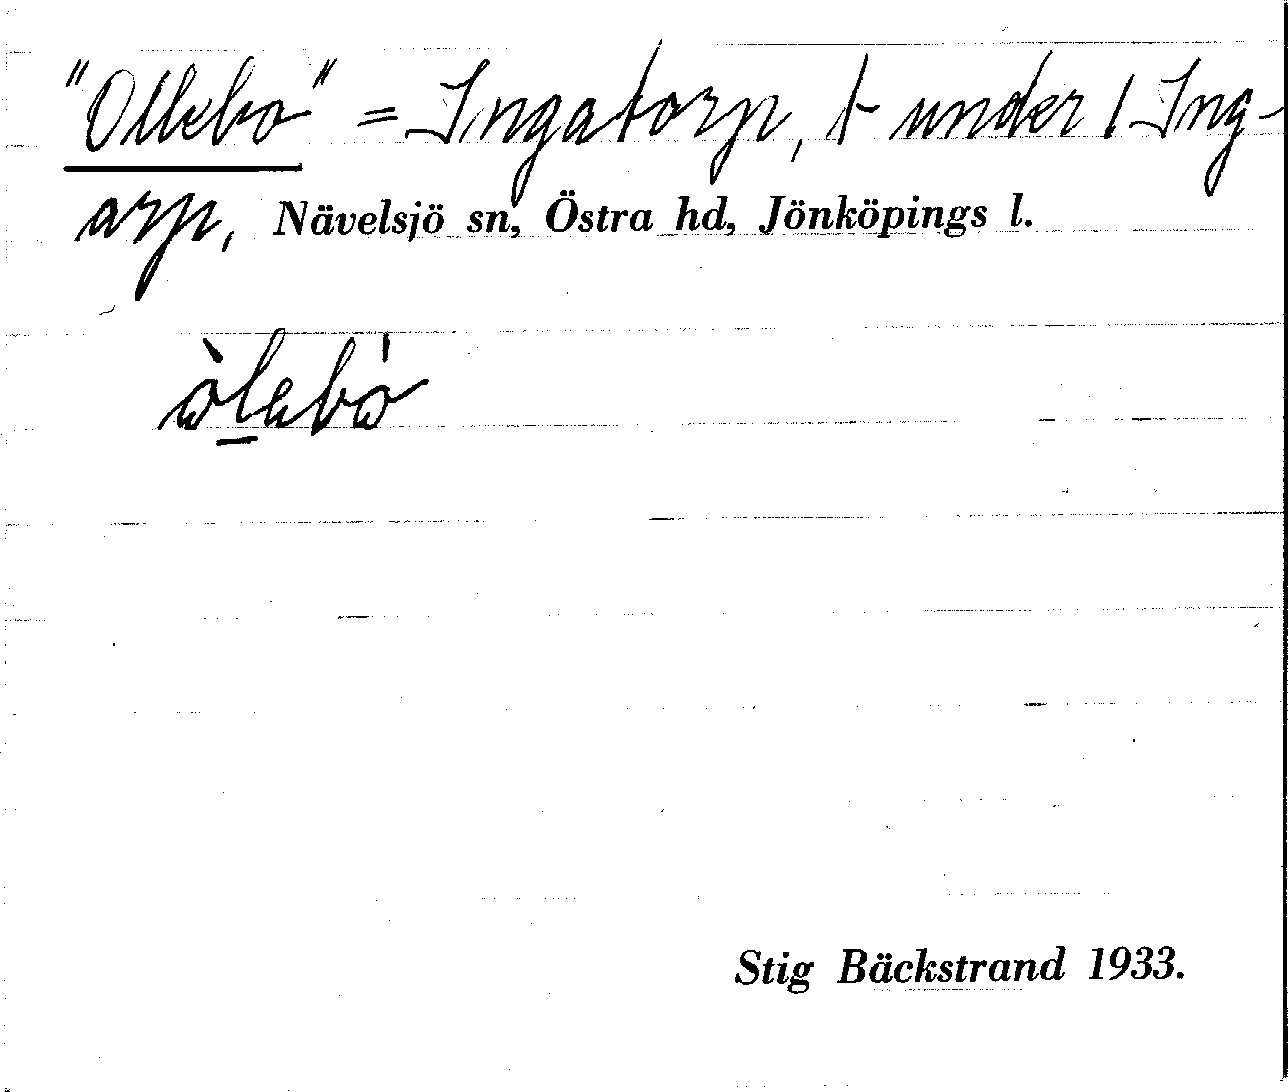 "Ollebo" = Ingatorp, t under 1 Ing-
arp, Nävelsjö sn, Östra hd, Jönköpings l.
òlebó
Stig Bäckstrand 1933.